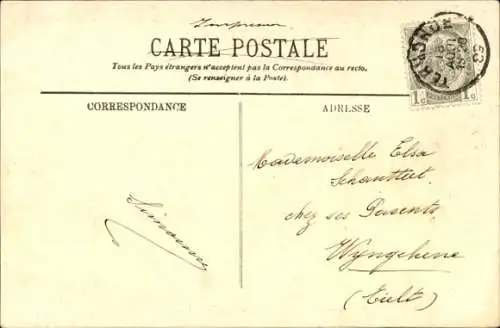 Imprimé
CARTE POSTALE
Tous les Pays étrangers n'acceptent pas la Correspondance au recto.
(Se renseigner à la Poste).
CORRESPONDANCE
ADRESSE
1 c
1 c
Mademoiselle Elsa
chez ses Parents
Wyngehene
(Tielt)
Simonne